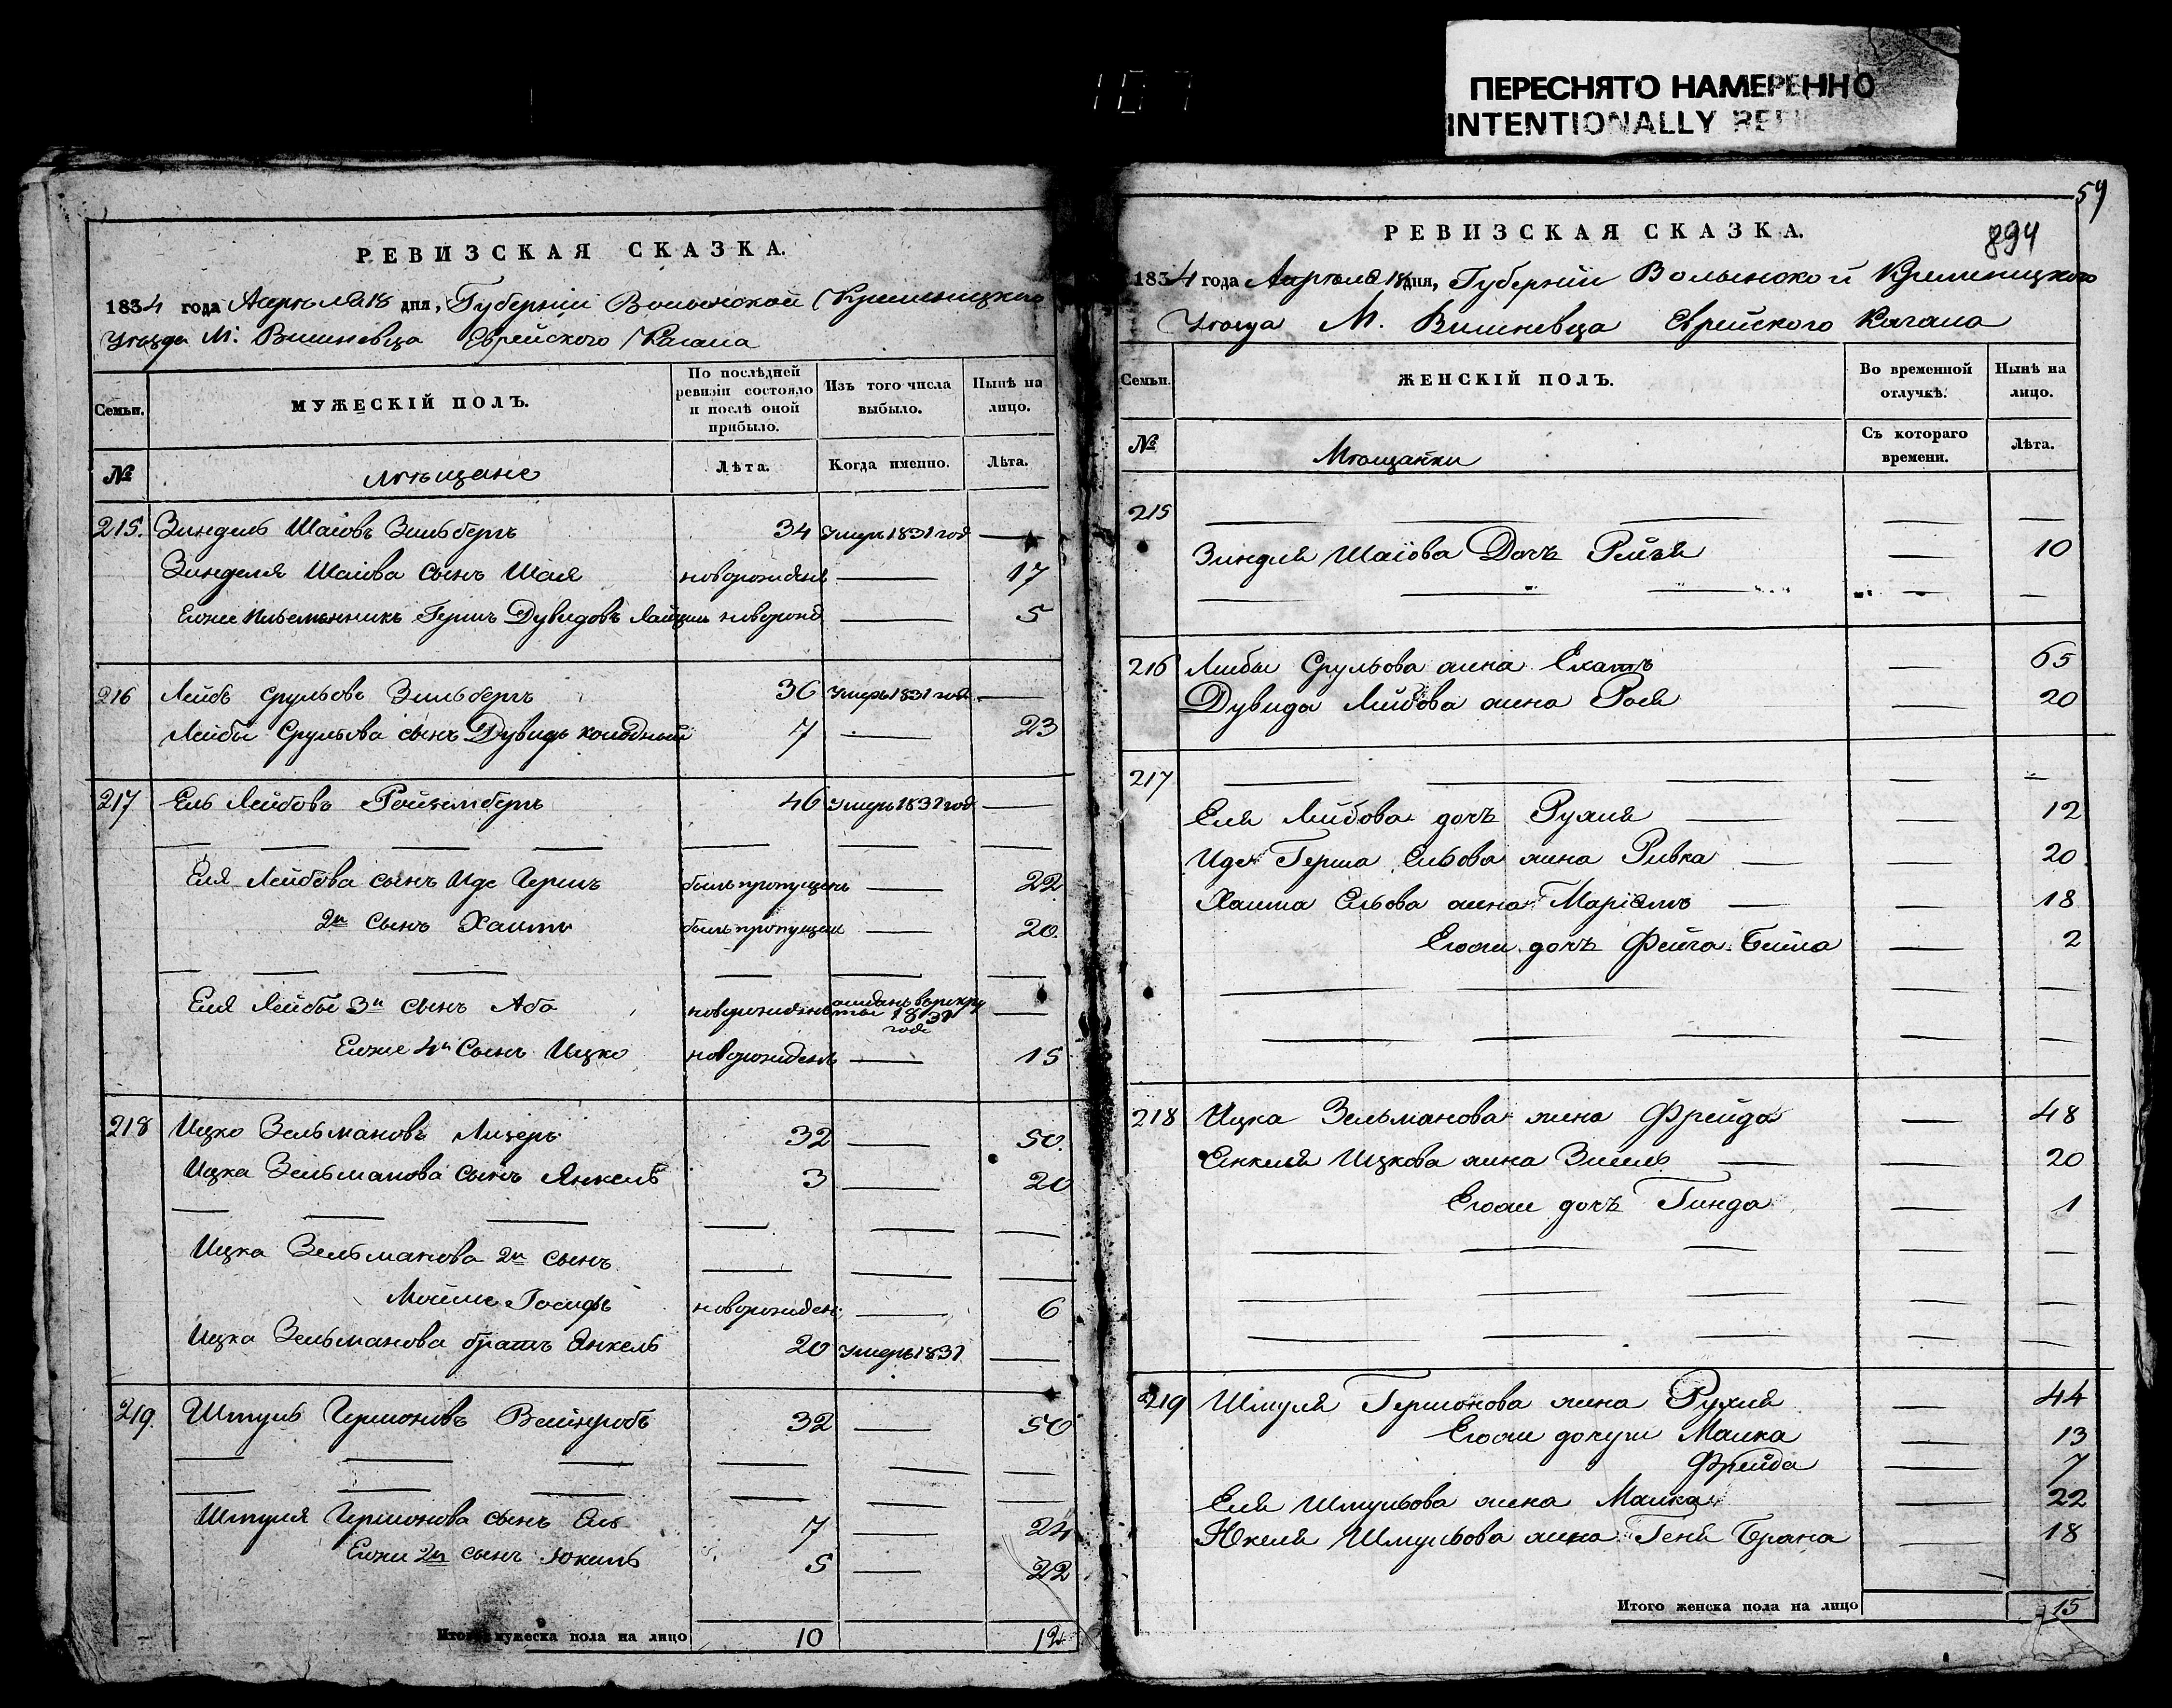 107
ПЕРЕСНЯТО НАМЕРЕННО
INTENTIONALLY
59
894
РЕВИЗСКАЯ СКАЗКА.
1834 года Апреля 18 дня, Губернии Волынской Кременицкого
Уезда М. Вишневца Еврейского Кагала
Семьи. МУЖЕСКІЙ ПОЛЪ. По послѣдней ревизіи состояло и послѣ оной прибыло. Изъ того числа выбыло. Нынѣ на лицо.
№ Мѣщане Лѣта. Когда именно. Лѣта.
215. Зиндель Шаіовъ Зильберъ 34 Умеръ 1831 год —
Зинделя Шаіова сынъ Шая новорожденъ — 17
Егоже племянникъ Гершъ Дувидовъ новорожд — 5
216 Лейбъ Срульовъ Зильберъ 36 Умеръ 1831 год —
Лейбы Срульова сынъ Дувидъ 7 — 23
217 Ель Лейбовъ Ройзенберъ 46 Умеръ 1831 год —
Еля Лейбова сынъ Иде Гершъ былъ пропущенъ — 22
2й сынъ Хаимъ былъ пропущен — 20.
Еля Лейбы 3й сынъ Аба новорожденъ отданъ в рекруты 1831 года —
Егоже 4й сынъ Ицко новорожденъ — 15
218 Ицко Зельмановъ Лизеръ 32 — 50.
Ицка Зельманова сынъ Янкель 3 — 20
Ицка Зельманова 2й сынъ
Мойше Госифъ новорожден: — 6
Ицка Зельманова братъ Янкель 20 Умеръ 1831 —
219. Шмуль Гершоновъ Вейнтробъ 32 — 50
Шмуля Гершонова сынъ Ель 7 — 24
Егоже 2й сынъ Юкель 5 — 22
Итого мужеска пола на лицо 10 12
РЕВИЗСКАЯ СКАЗКА.
1834 года Апреля 18 дня, Губерніи Волынской Кременицкого
Уезда М. Вишневца Еврейского Кагала
Семьи. ЖЕНСКІЙ ПОЛЪ. Во временной отлучкѣ. Нынѣ на лицо.
№ Мѣщанки Съ котораго времени. Лѣта.
215
Зинделя Шаіова Дочъ Рейзя — 10
216 Лейбы Срульова жена — 65
Дувида Лейбова жена Рося — 20
217
Еля Лейбова дочъ Рухля — 12
Иде Герша Ельова жена Ривка — 20
Хаима Ельова жена Маріямъ — 18
Егоже дочъ Фейга Бейла — 2
218 Ицка Зельманова жена Фрейда — 48
Енкеля Ицкова жена — 20
Егоже дочъ Гинда — 1
219 Шмуля Гершонова жена Рухля — 44
Егоже дочери Малка — 13
Фрейда — 7
Еля Шмульова жена Малка — 22
Юкеля Шмульова жена Геня Брана — 18
Итого женска пола на лицо 15